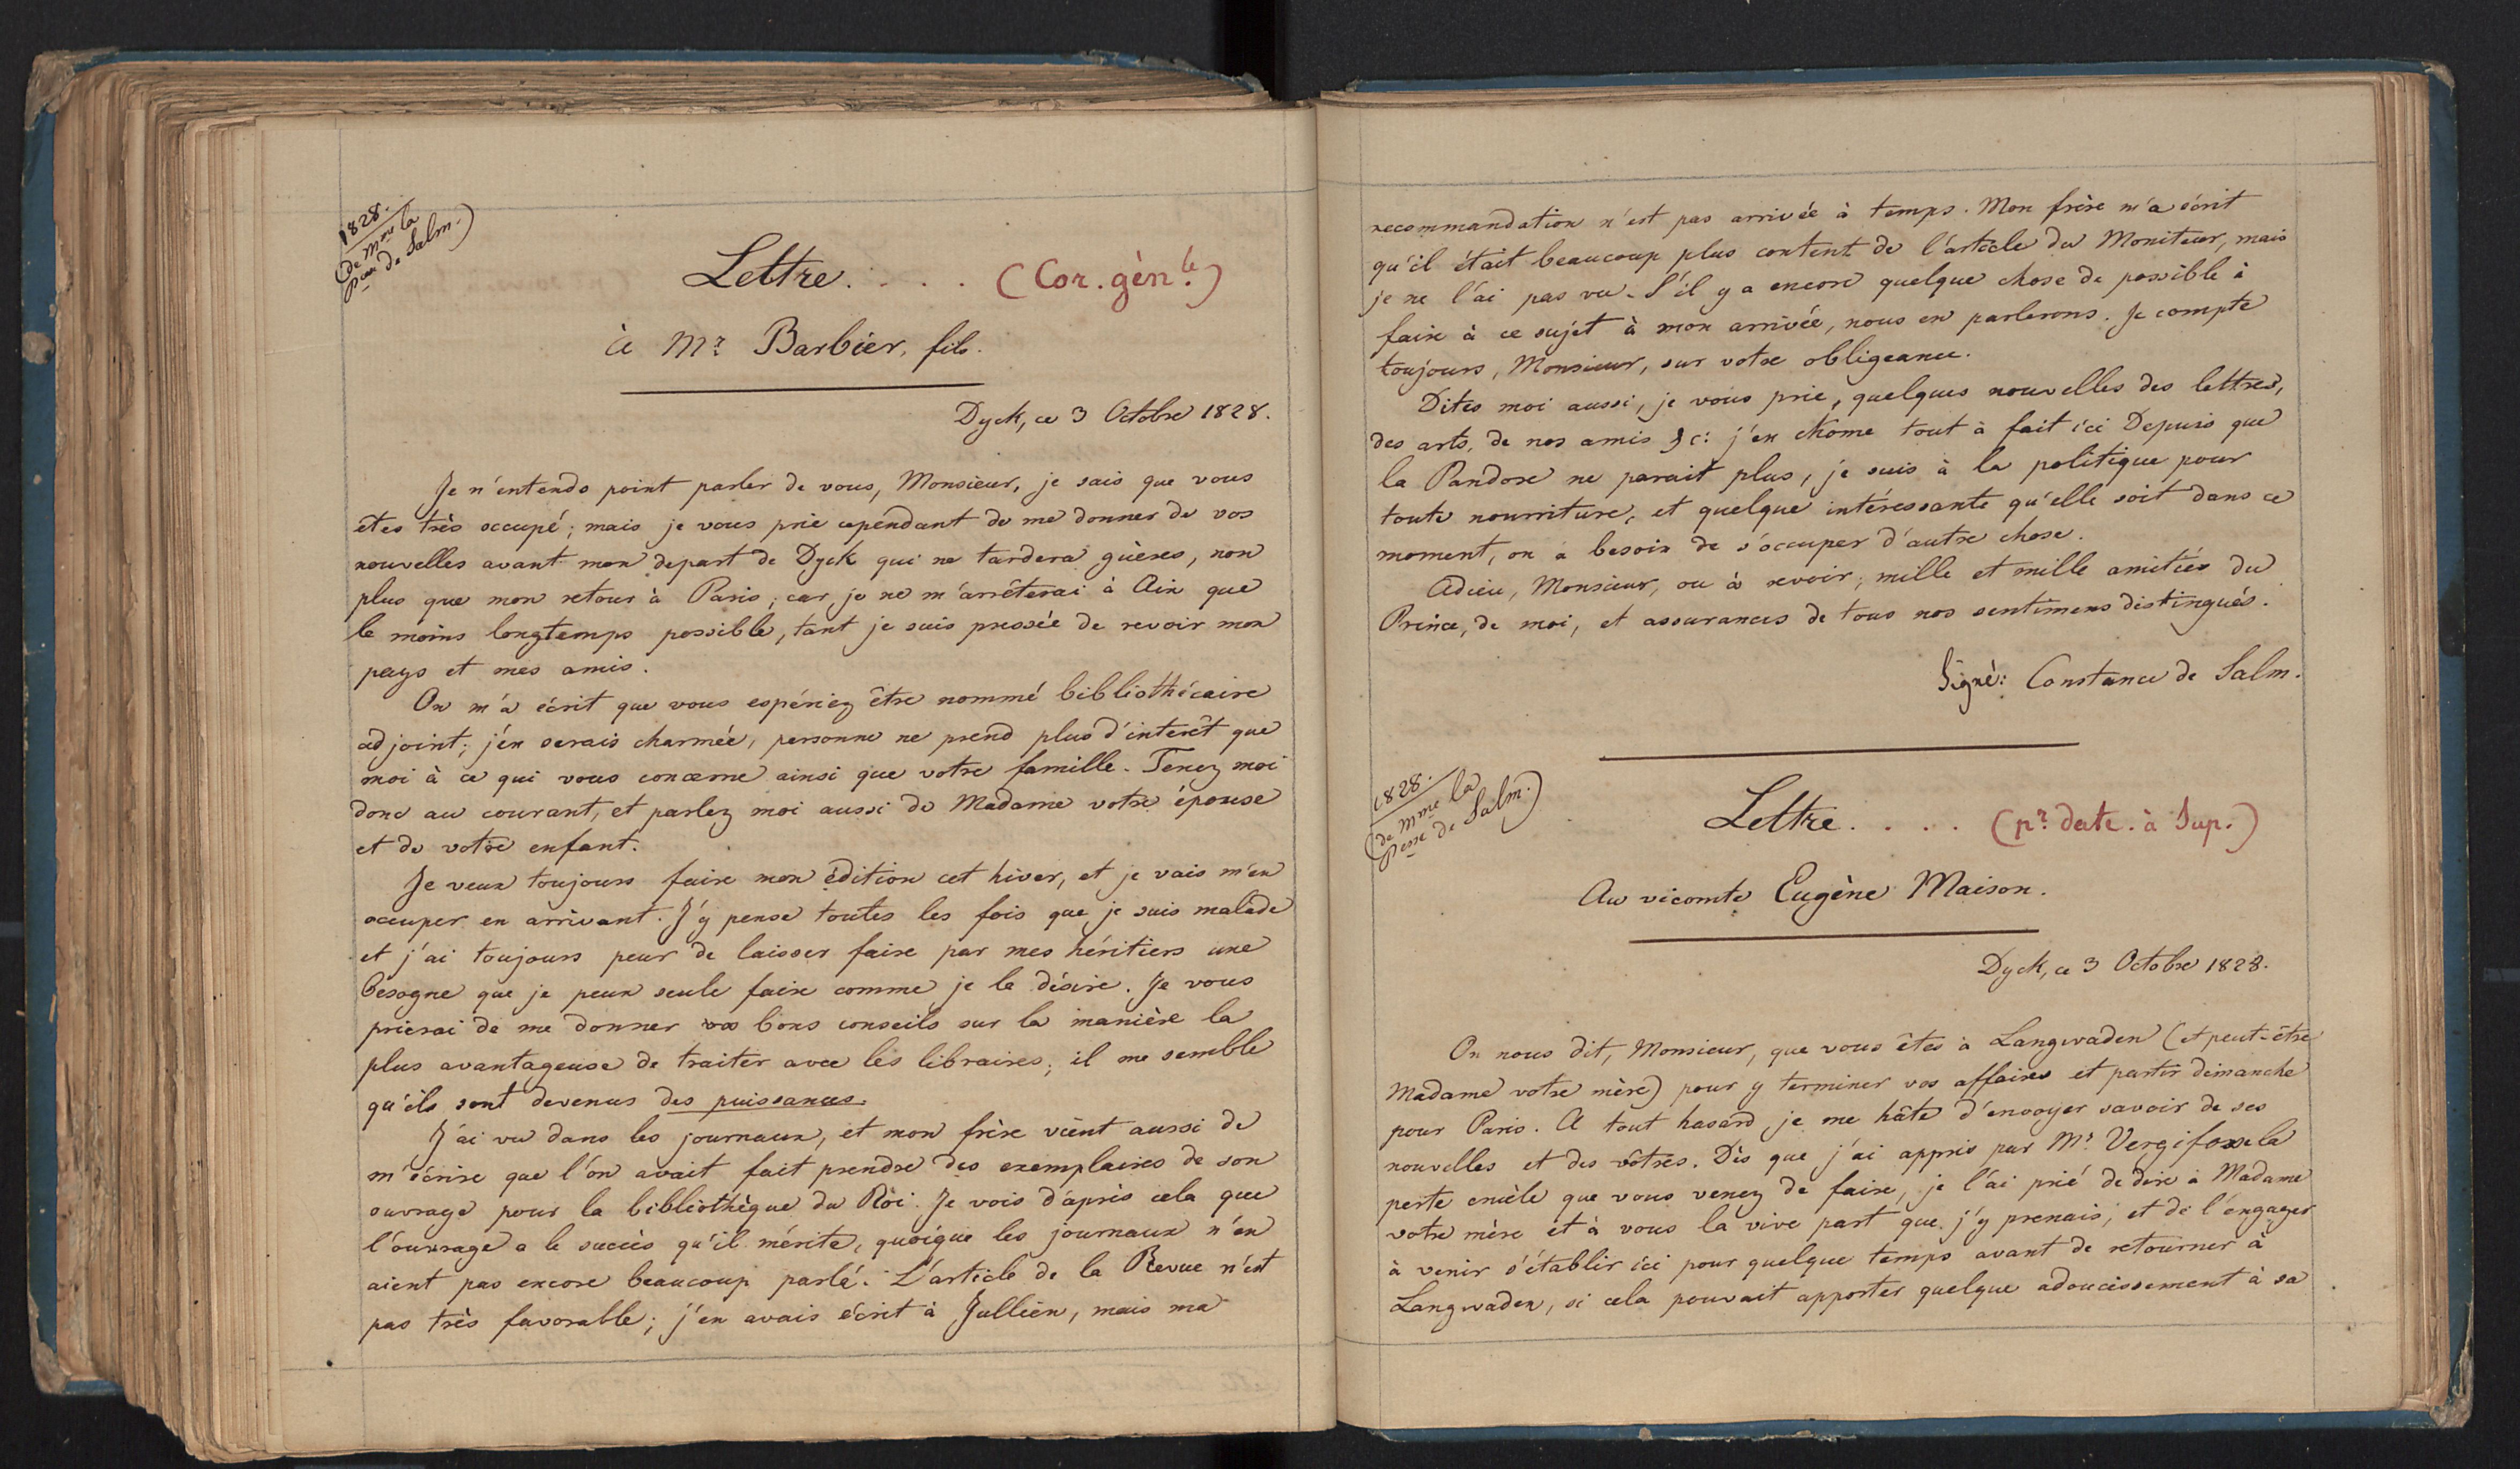 1828.
(de Mme la
Pcesse de Salm.)
Lettre. . . . (Cor. gèn.le)
à Mr Barbier, fils.
Dyck, ce 3 Octobre 1828.
Je n'entends point parler de vous, Monsieur, je sais que vous
êtes très occupé; mais je vous prie cependant de me donner de vos
nouvelles avant mon depart de Dyck qui ne tardera guères, non
plus que mon retour à Paris; car je ne m'arrêterai à Aix que
le moins longtemps possible, tant je suis pressée de revoir mon
pays et mes amis.
On m'a écrit que vous espériez être nommé bibliothécaire
adjoint; j'en serais charmée, personne ne prend plus d'interêt que
moi à ce qui vous concerne ainsi que votre famille. Tenez moi
donc au courant, et parlez moi aussi de Madame votre épouse
et de votre enfant.
Je veux toujours faire mon édition cet hiver, et je vais m'en
occuper en arrivant. J'y pense toutes les fois que je suis malade
et j'ai toujours peur de laisser faire par mes héritiers une
besogne que je peux seule faire comme je le désire. Je vous
prierai de me donner vos bons conseils sur la manière la
plus avantageuse de traiter avec les libraires; il me semble
qu'ils sont devenus des puissances.
J'ai vu dans les journaux, et mon frère vient aussi de
m'écrire que l'on avait fait prendre des exemplaires de son
ouvrage pour la bibliothèque du Roi. Je vois d'après cela que
l'ouvrage a le succès qu'il mérite, quoique les journaux n'en
aient pas encore beaucoup parlé. L'article de la Revue n'est
pas très favorable; j'en avais écrit à Jullien, mais ma
recommandation n'est pas arrivée à temps. Mon frère m'a écrit
qu'il était beaucoup plus content de l'article du Moniteur, mais
je ne l'ai pas vu. S'il y a encore quelque chose de possible à
faire à ce sujet à mon arrivée, nous en parlerons. Je compte
toujours, Monsieur, sur votre obligeance.
Dites moi aussi, je vous prie, quelques nouvelles des lettres,
des arts, de nos amis &c: j'en chome tout à fait ici Depuis que
la Pandore ne parait plus, je suis à la politique pour
toute nourriture, et quelque intéressante qu'elle soit dans ce
moment, on a besoin de s'occuper d'autre chose.
Adieu, Monsieur, ou à revoir; mille et mille amitiés du
Prince, de moi, et assurances de tous nos sentimens distingués.
Signé: Constance de Salm.
1828.
(de Mme la
Pesse de Salm.)
Lettre. . . . (pr. date. à Sup.)
Au vicomte Eugène Maison.
Dyck, ce 3 Octobre 1828.
On nous dit, Monsieur, que vous êtes à Langwaden (et peut-être
Madame votre mère) pour y terminer vos affaires et partir dimanche
pour Paris. A tout hasard, je me hâte d'envoyer savoir de ses
nouvelles et des vôtres. Dès que j'ai appris par Mr Vergifosse la
perte cruèle que vous venez de faire, je l'ai prié de dire à Madame
votre mère et à vous la vive part que j'y prenais, et de l'engager
à venir s'établir ici pour quelque temps avant de retourner à
Langwaden, si cela pouvait apporter quelque adoucissement à sa